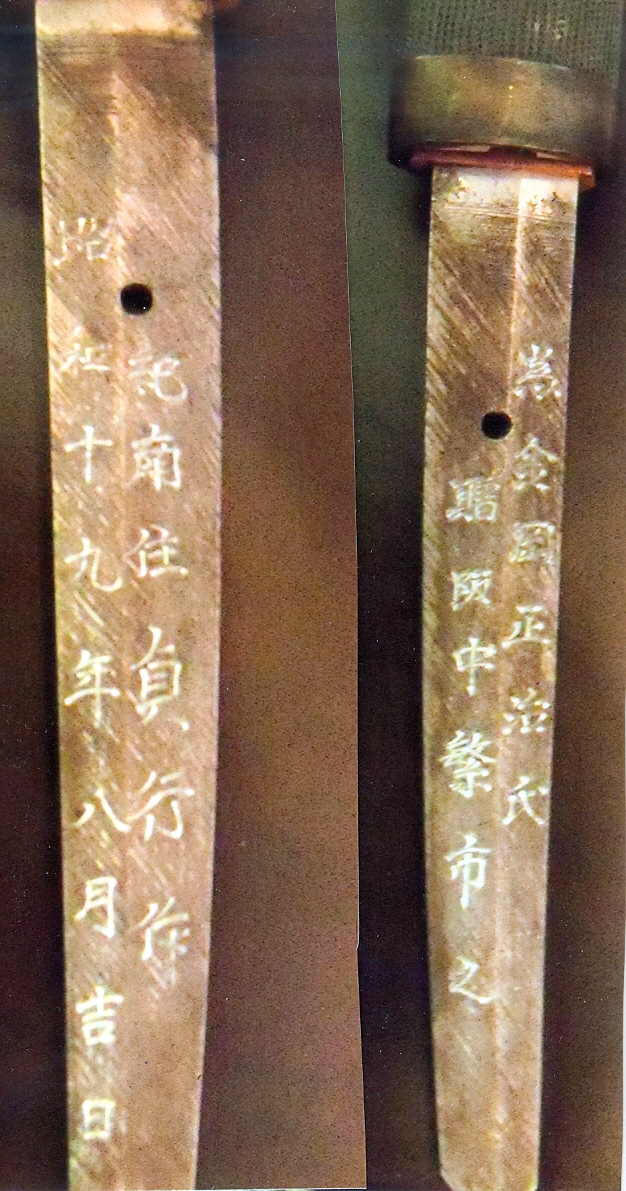 紀南住貞行作
昭和十九年八月吉日
為金岡正治氏
贈阪中繁市之